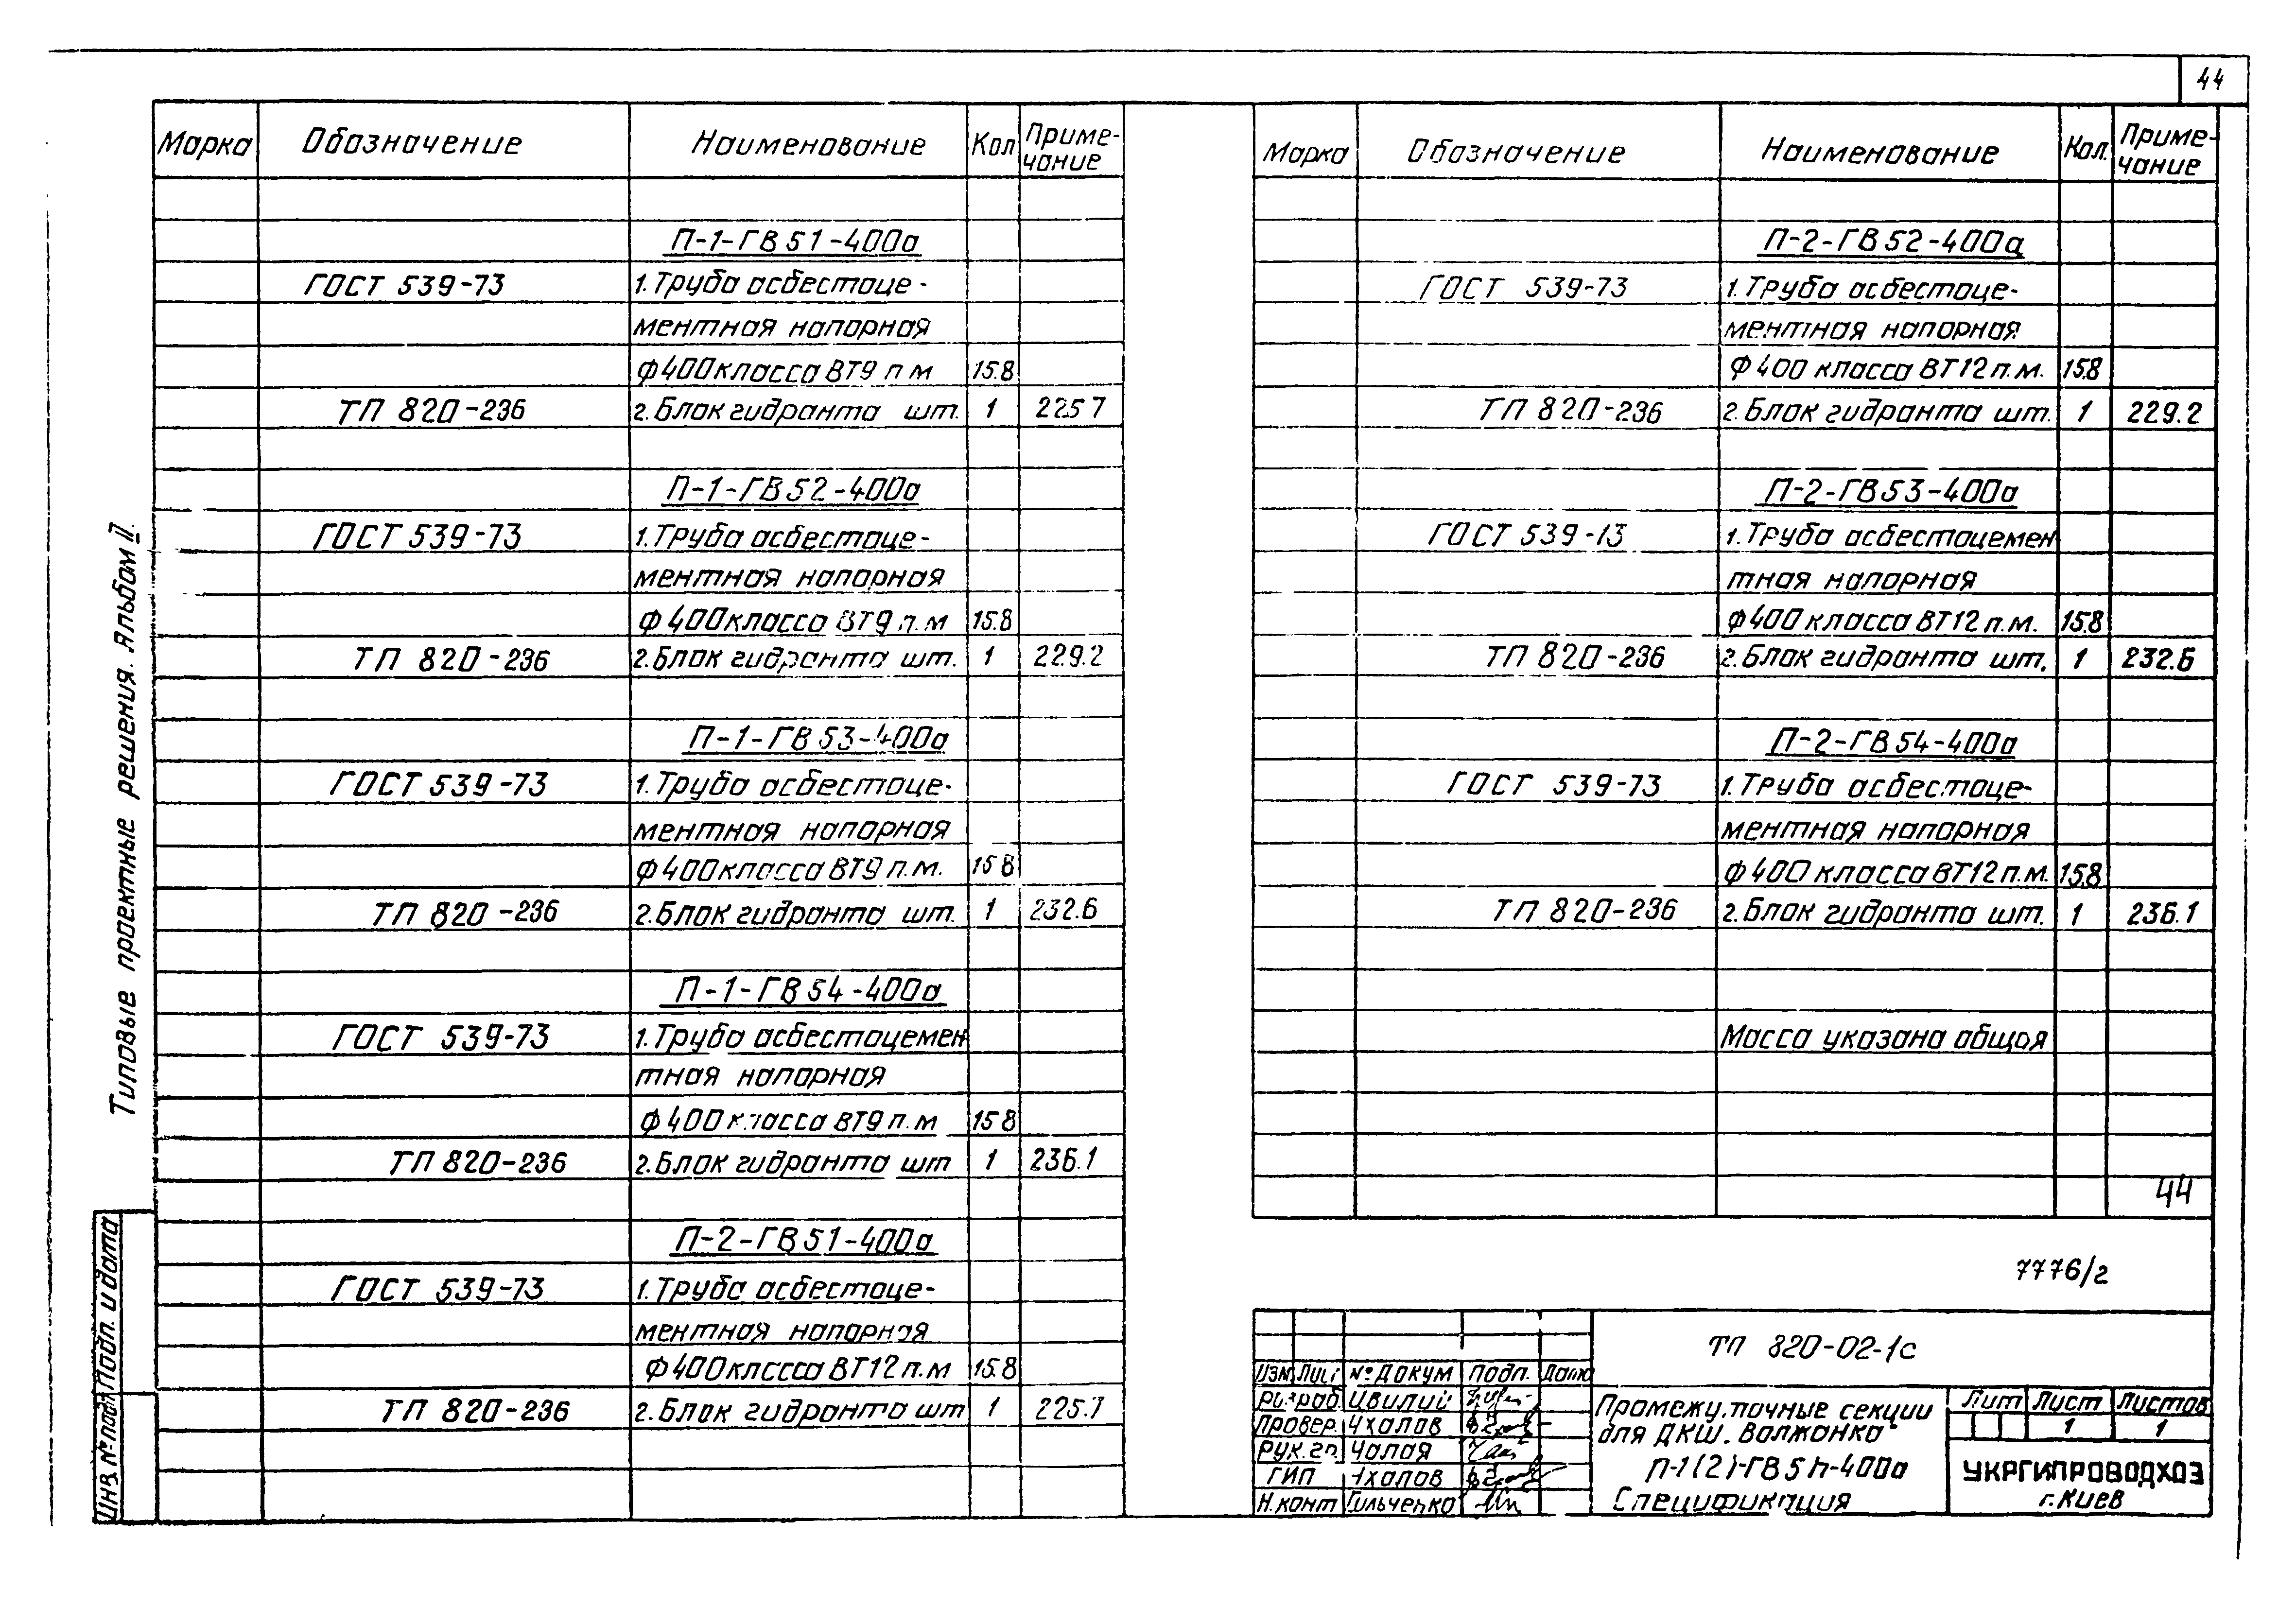 44
Марка Обозначение Наименование Кол Приме-
чание
П-1-ГВ51-400а
ГОСТ 539-73 1. Труба асбестоце-
ментная напорная
ф400 класса ВТ9 п.м 15.8
ТП 820-236 2. Блок гидранта шт. 1 225 7
П-1-ГВ52-400а
ГОСТ 539-73 1. Труба асбестоце-
ментная напорная
ф400 класса ВТ9 п.м 15.8
ТП 820-236 2. Блок гидранта шт. 1 229.2
П-1-ГВ53-400а
ГОСТ 539-73 1. Труба асбестоце-
ментная напорная
ф400 класса ВТ9 п.м. 15 8
ТП 820-236 2. Блок гидранта шт. 1 232.6
П-1-ГВ54-400а
ГОСТ 539-73 1. Труба асбестоцемен
тная напорная
ф400 класса ВТ9 п.м 15 8
ТП 820-236 2. Блок гидранта шт 1 236.1
П-2-ГВ51-400а
ГОСТ 539-73 1. Труба асбестоце-
ментная напорная
ф400 класса ВТ12 п.м 15.8
ТП 820-236 2. Блок гидранта шт 1 225.7
Марка Обозначение Наименование Кол. Приме-
чание
П-2-ГВ52-400а
ГОСТ 539-73 1. Труба асбестоце-
ментная напорная
ф400 класса ВТ12 п.м. 15.8
ТП 820-236 2. Блок гидранта шт. 1 229.2
П-2-ГВ53-400а
ГОСТ 539-73 1. Труба асбестоцемен
тная напорная
ф400 класса ВТ12 п.м. 15.8
ТП 820-236 2. Блок гидранта шт. 1 232.6
П-2-ГВ54-400а
ГОСТ 539-73 1. Труба асбестоце-
ментная напорная
ф400 класса ВТ12 п.м. 15.8
ТП 820-236 2. Блок гидранта шт. 1 236.1
Масса указана общая
44
7776/2
Типовые проектные решения. Альбом II.
Подп. и дата
Инв. № подл
ТП 820-02-1с
Изм Лист № докум Подп. Дата
Разраб Ивилий
Провер. Чхалов
Рук. гр. Чалая
ГИП Чхалов
Н. конт Гильченко
Промежуточные секции
для ДКШ „Волжанка"
П-1(2)-ГВ5п-400а
Спецификация
Лит Лист Листов
1 1
УКРГИПРОВОДХОЗ
г. Киев